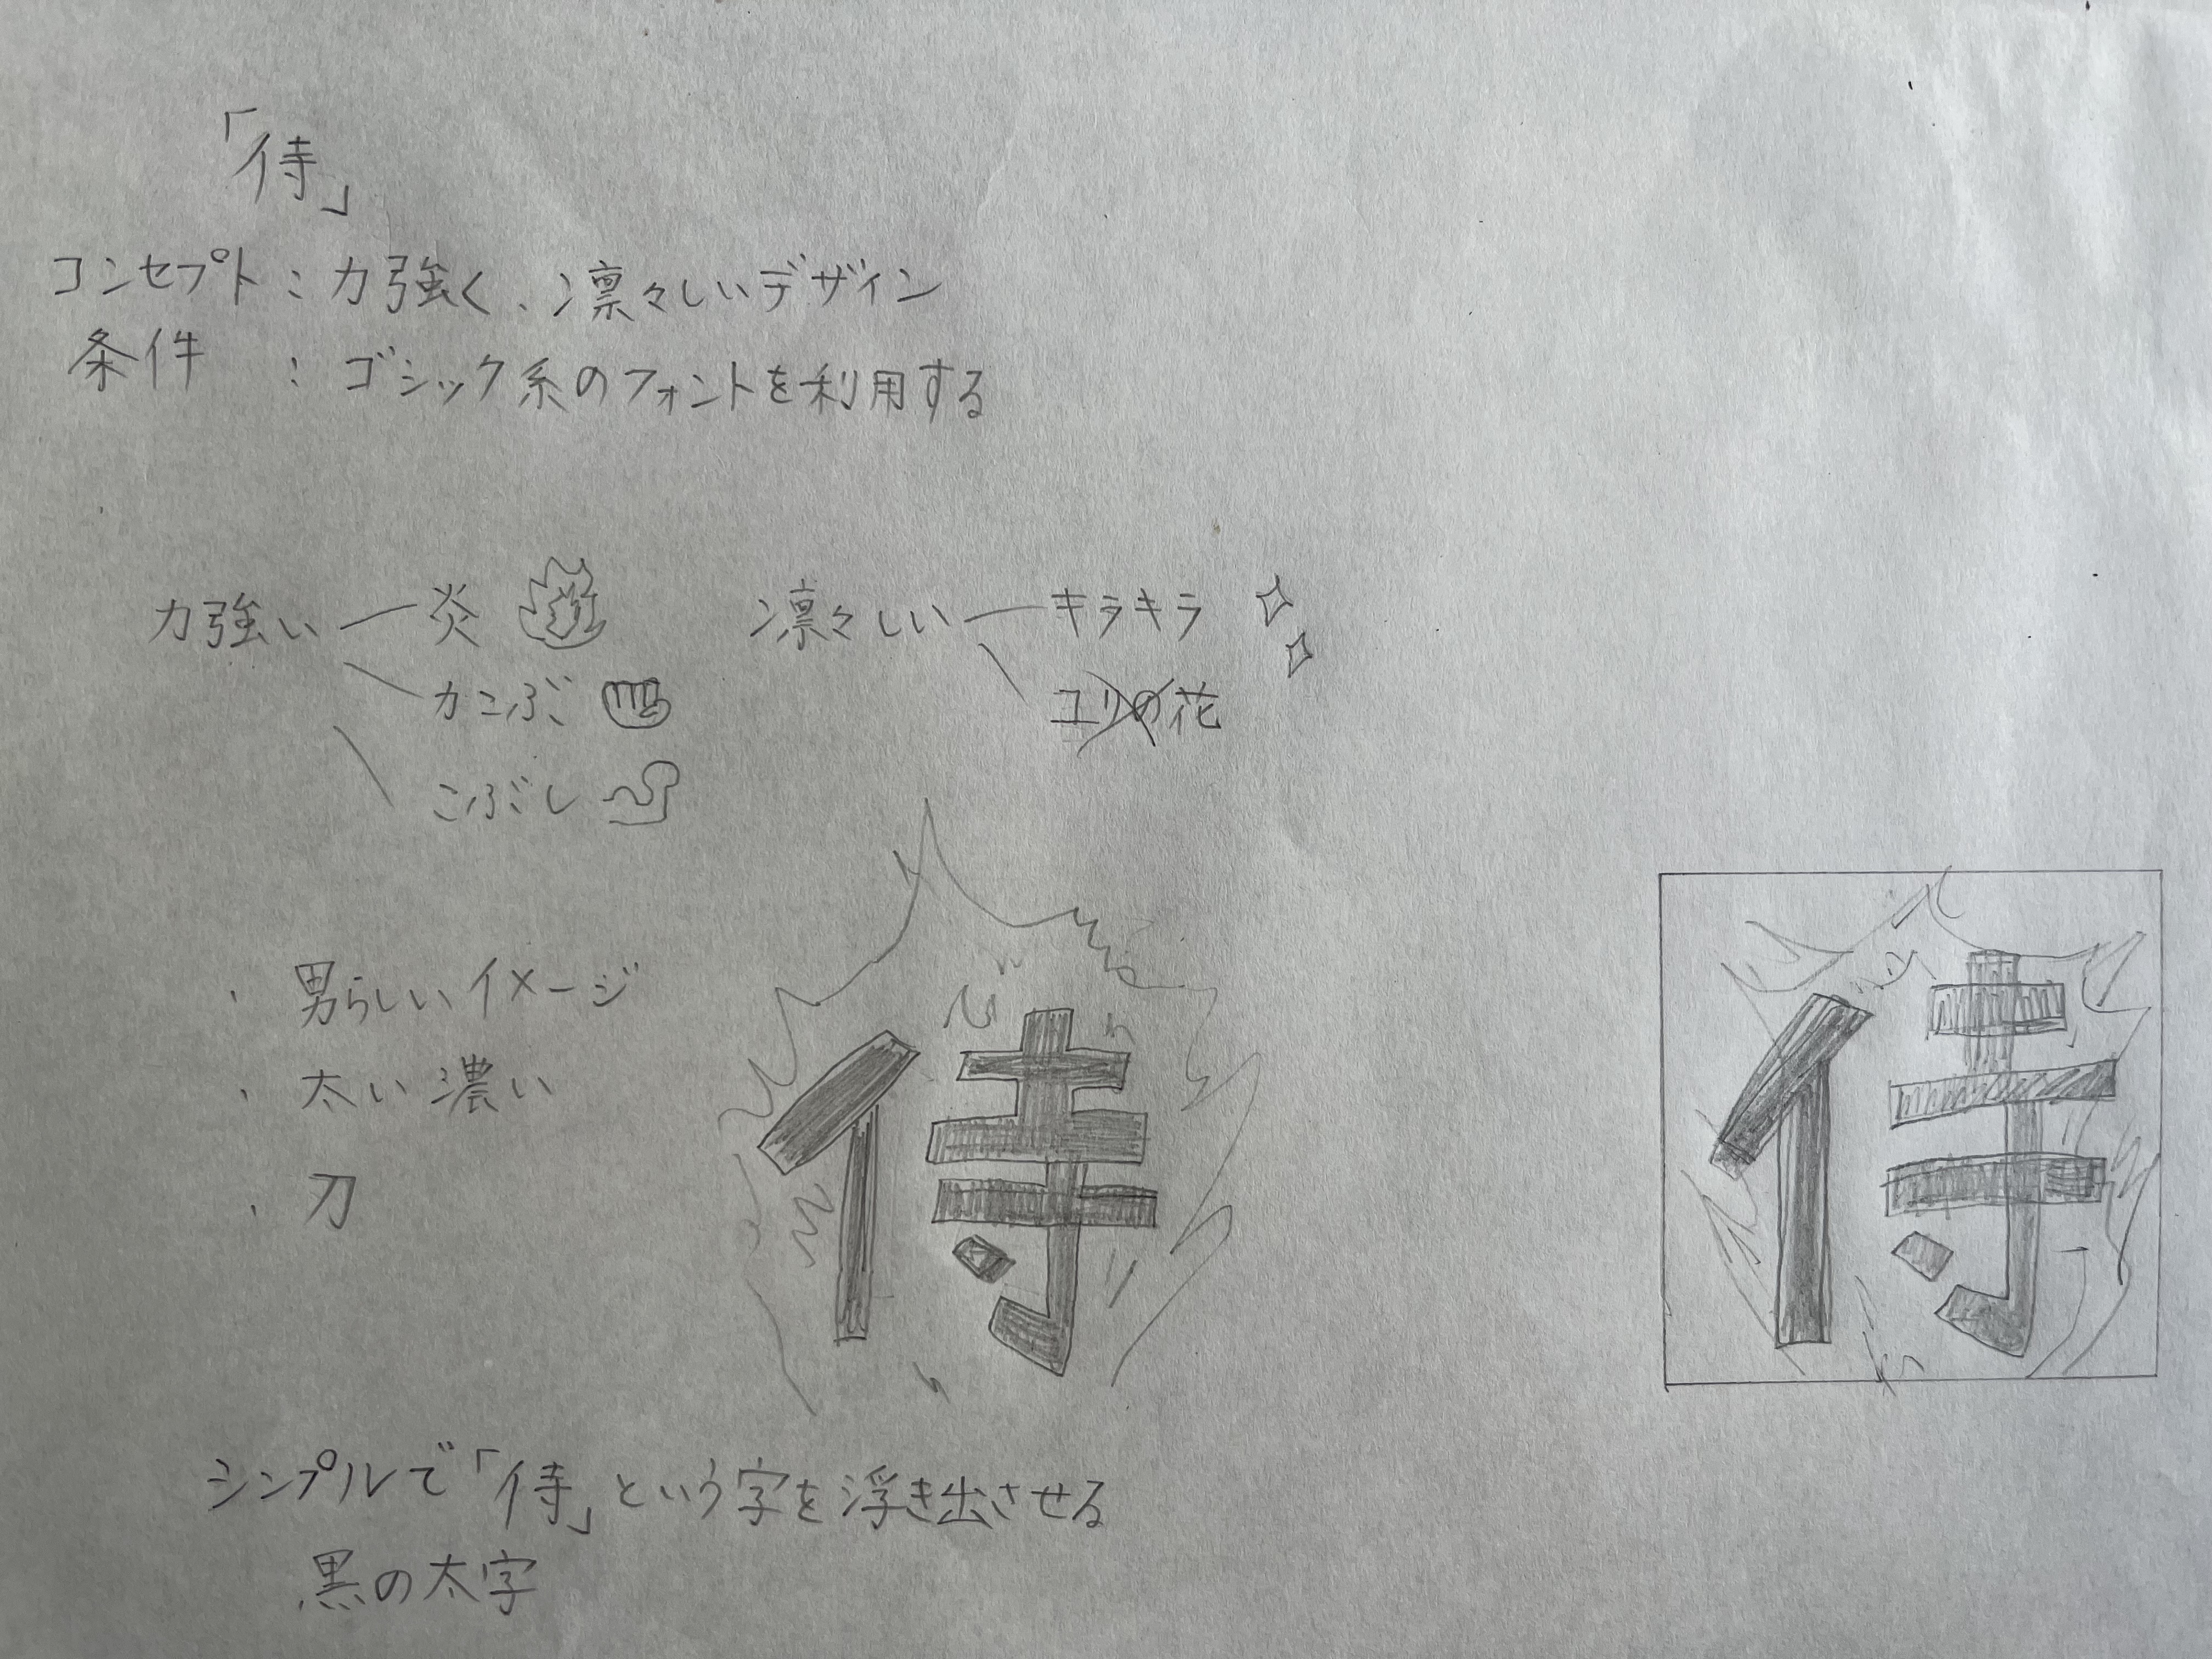 「侍」
コンセプト：力強く、凛々しいデザイン
条件：ゴシック系のフォントを利用する
力強い 炎
凛々しい キラキラ
力こぶ
ユリの花
こぶし
・男らしいイメージ
・太い濃い
・刀
侍
侍
シンプルで「侍」という字を浮き出させる
黒の太字